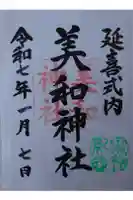 延喜式内
美和神社
令和七年一月七日